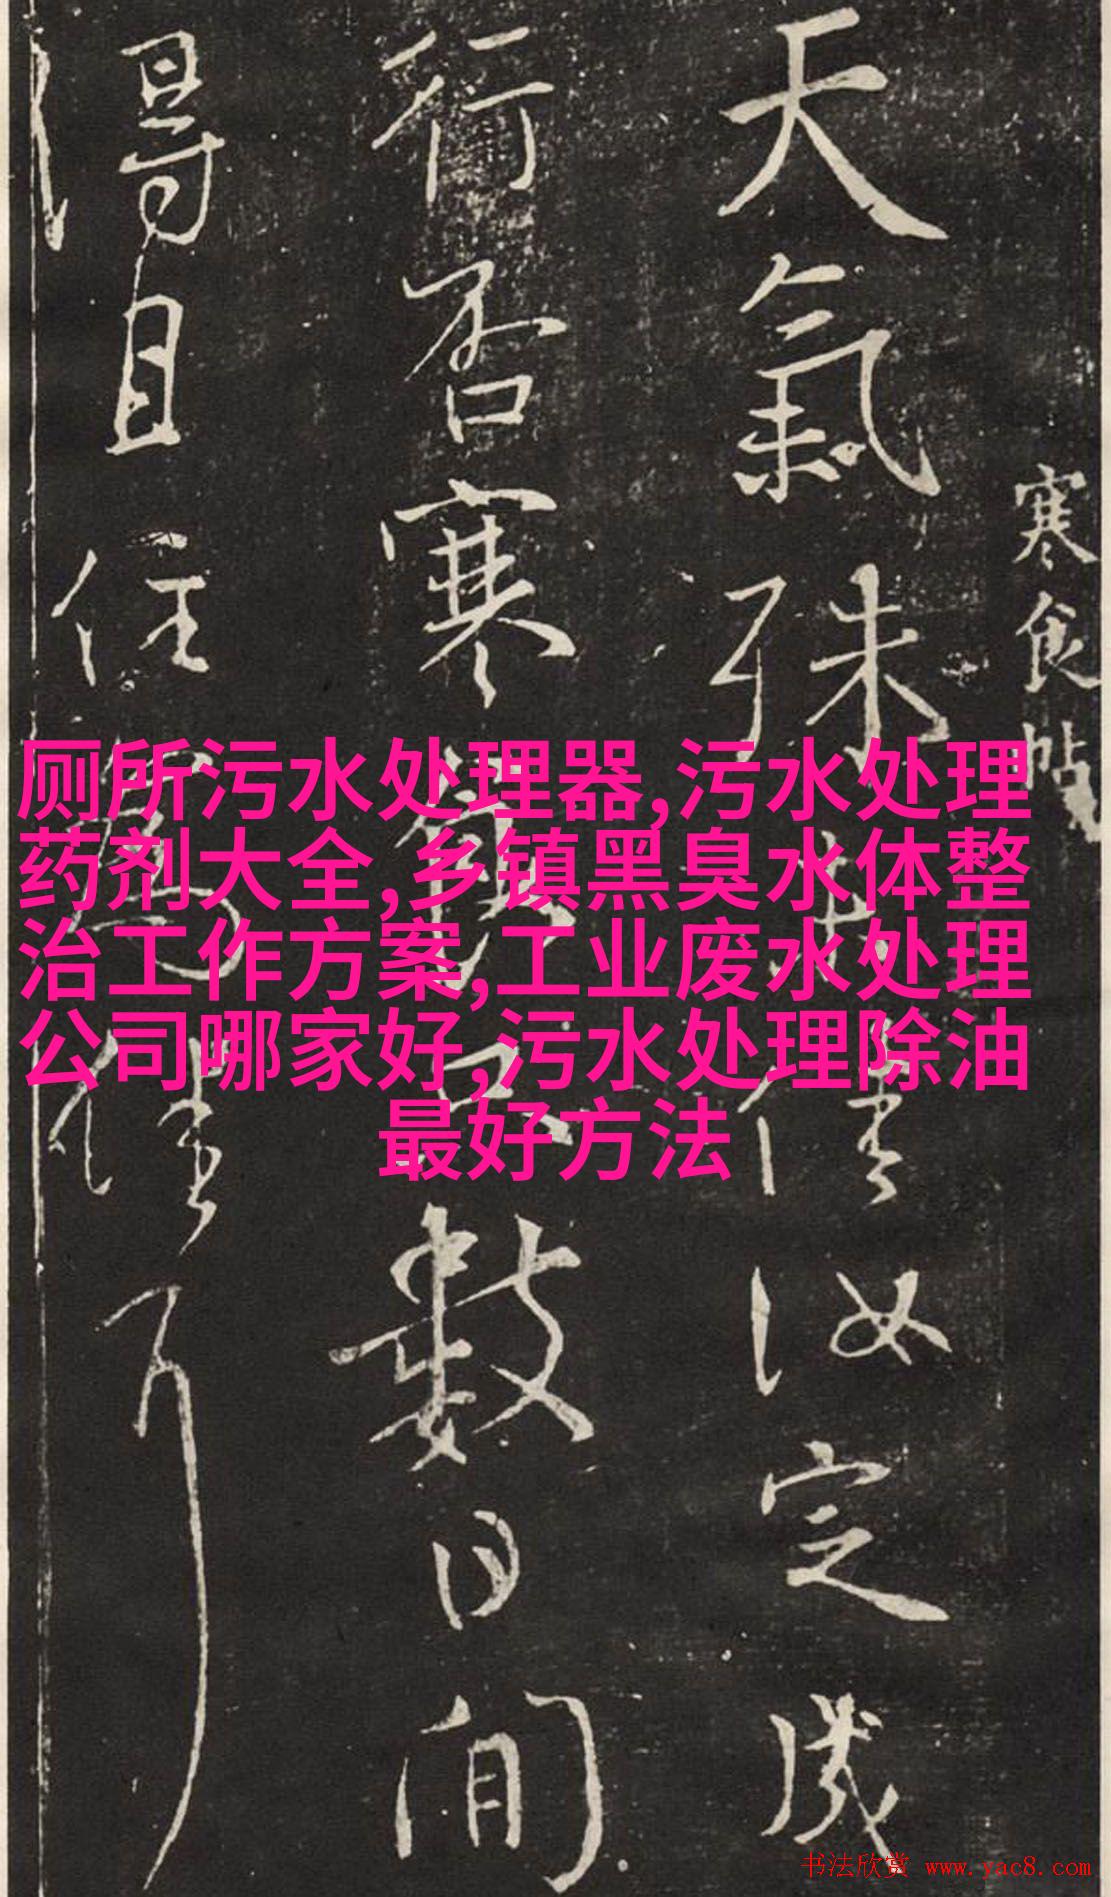 寒食帖
天氣殊未佳汝定成
行否寒食只數日間
得且住為佳耳
厕所污水处理器,污水处理
药剂大全,乡镇黑臭水体整
治工作方案,工业废水处理
公司哪家好,污水处理除油
最好方法
书法欣赏 www.yac8.com